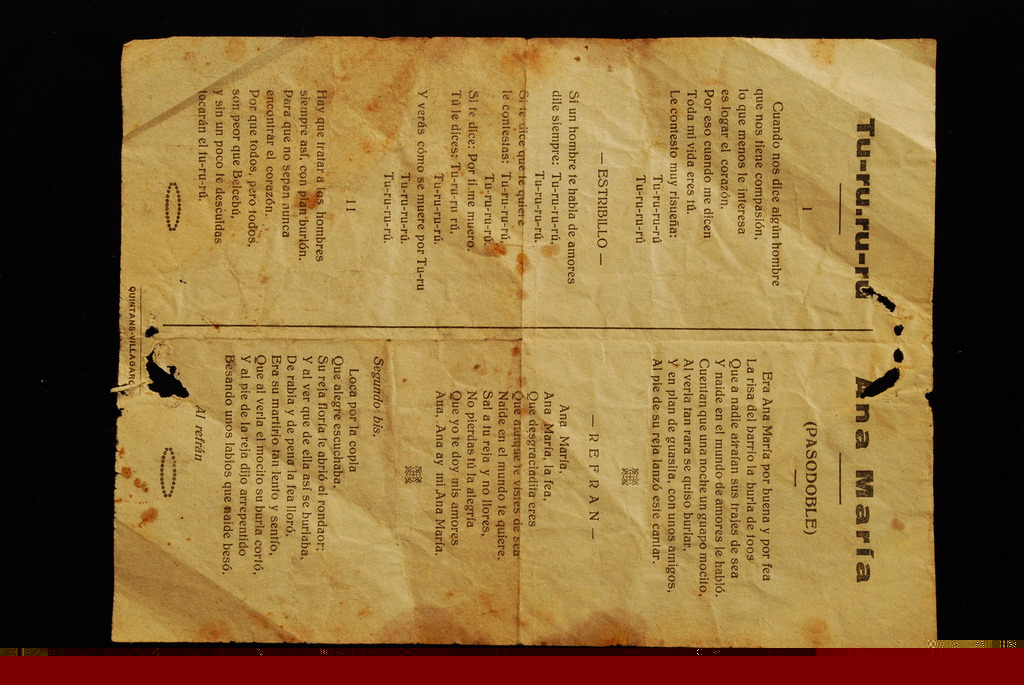 Tu-ru.ru-ru
I
Cuando nos dice algún hombre
que nos tiene compasión,
lo que menos le interesa
es logar el corazón.
Por eso cuando me dicen
Toda mi vida eres tú.
Le contesto muy risueña:
Tu-ru-ru-rú
Tu-ru-ru-rú
Tu-ru-ru-rú
— ESTRIBILLO —
Si un hombre te habla de amores
dile siempre: Tu-ru-ru-rú,
Tu-ru-ru-rú.
Si te dice que te quiere
le contestas: Tu-ru-ru-rú,
Tu-ru-ru-rú.
Si te dice: Por ti me muero.
Tú le dices: Tu-ru-ru rú,
Tu-ru-ru-rú.
Y verás cómo se muere por Tu-ru
Tu-ru-ru-rú.
Tu-ru-ru-rú.
II
Hay que tratar a los hombres
siempre así, con plan burlón.
Para que no sepan nunca
encontrar el corazón.
Por que todos, pero todos,
son peor que Belcebú,
y sin un poco te descuidas
tocarán el tu-ru-rú.
QUINTANS-VILLAGARC
Ana María
(PASODOBLE)
Era Ana María por buena y por fea
La risa del barrio la burla de toos
Que a nadie atraían sus trajes de sea
Y naide en el mundo de amores le habló.
Cuentan que una noche un guapo mocito,
Al verla tan rara se quiso burlar,
Y en plan de guasita, con unos amigos,
Al pie de su reja lanzó este cantar.
— REFRAN —
Ana María,
Ana María, la fea,
Que desgraciadita eres
Que aunque te vistes de sea
Naide en el mundo te quiere,
Sal a tu reja y no llores,
No pierdas tú la alegría
Que yo te doy mis amores
Ana, Ana ay mi Ana María.
Segundo bis.
Loca por la copla
Que alegre escuchaba,
Su reja floría le abrió al rondaor;
Y al ver que de ella así se burlaba,
De rabia y de pena la fea lloró,
Era su martirio tan lento y sentío,
Que al verla el mocito su burla cortó,
Y al pie de la reja dijo arrepentido
Besando unos labios que naide besó,
Al refrán